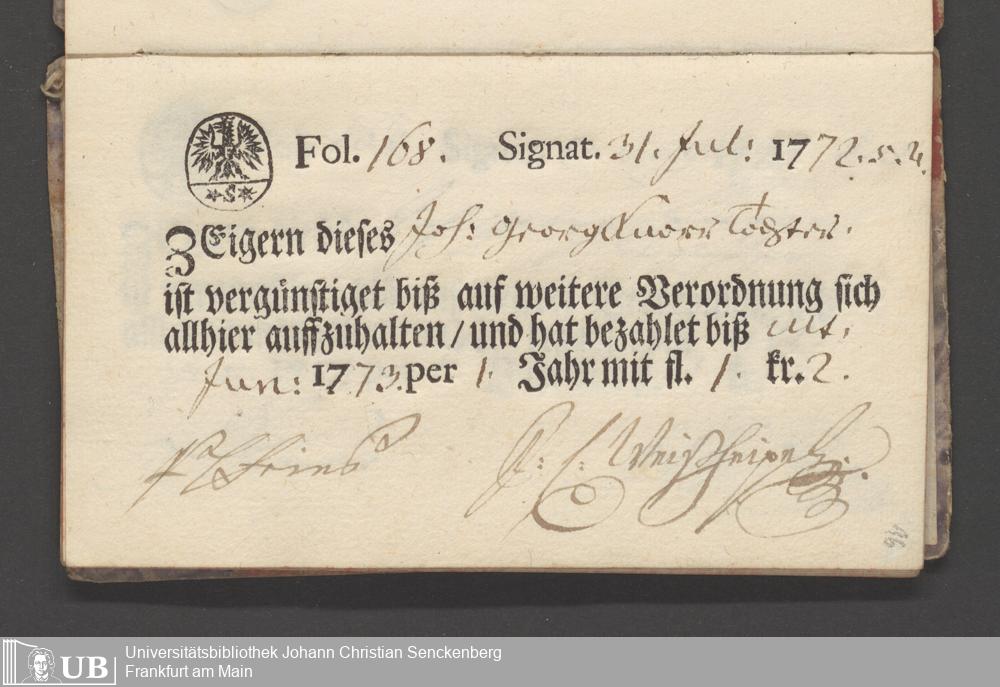 Fol. 168. Signat. 31. Jul: 1772.
S
ZEigern dieses Joh: Georg Knorr Töchter.
ist vergünstiget biß auf weitere Verordnung sich
allhier auffzuhalten / und hat bezahlet biß ult.
Jun: 1773. per 1. Jahr mit fl. 1. kr. 2.
36
UB
Universitätsbibliothek Johann Christian Senckenberg
Frankfurt am Main